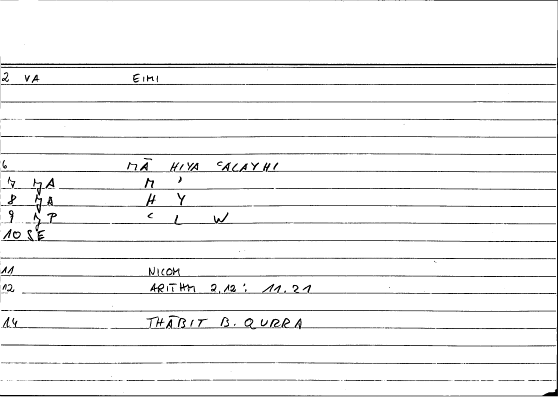 2 VA EIMI
6 MĀ HIYA ʿALAYHI
7 ȜA M ʾ
8 ȜA H Y
9 ȜP ʿ L W
10 SE
11 NICOM
12 ARITHM 2.12: 11.21
14 THĀBIT B. QURRA